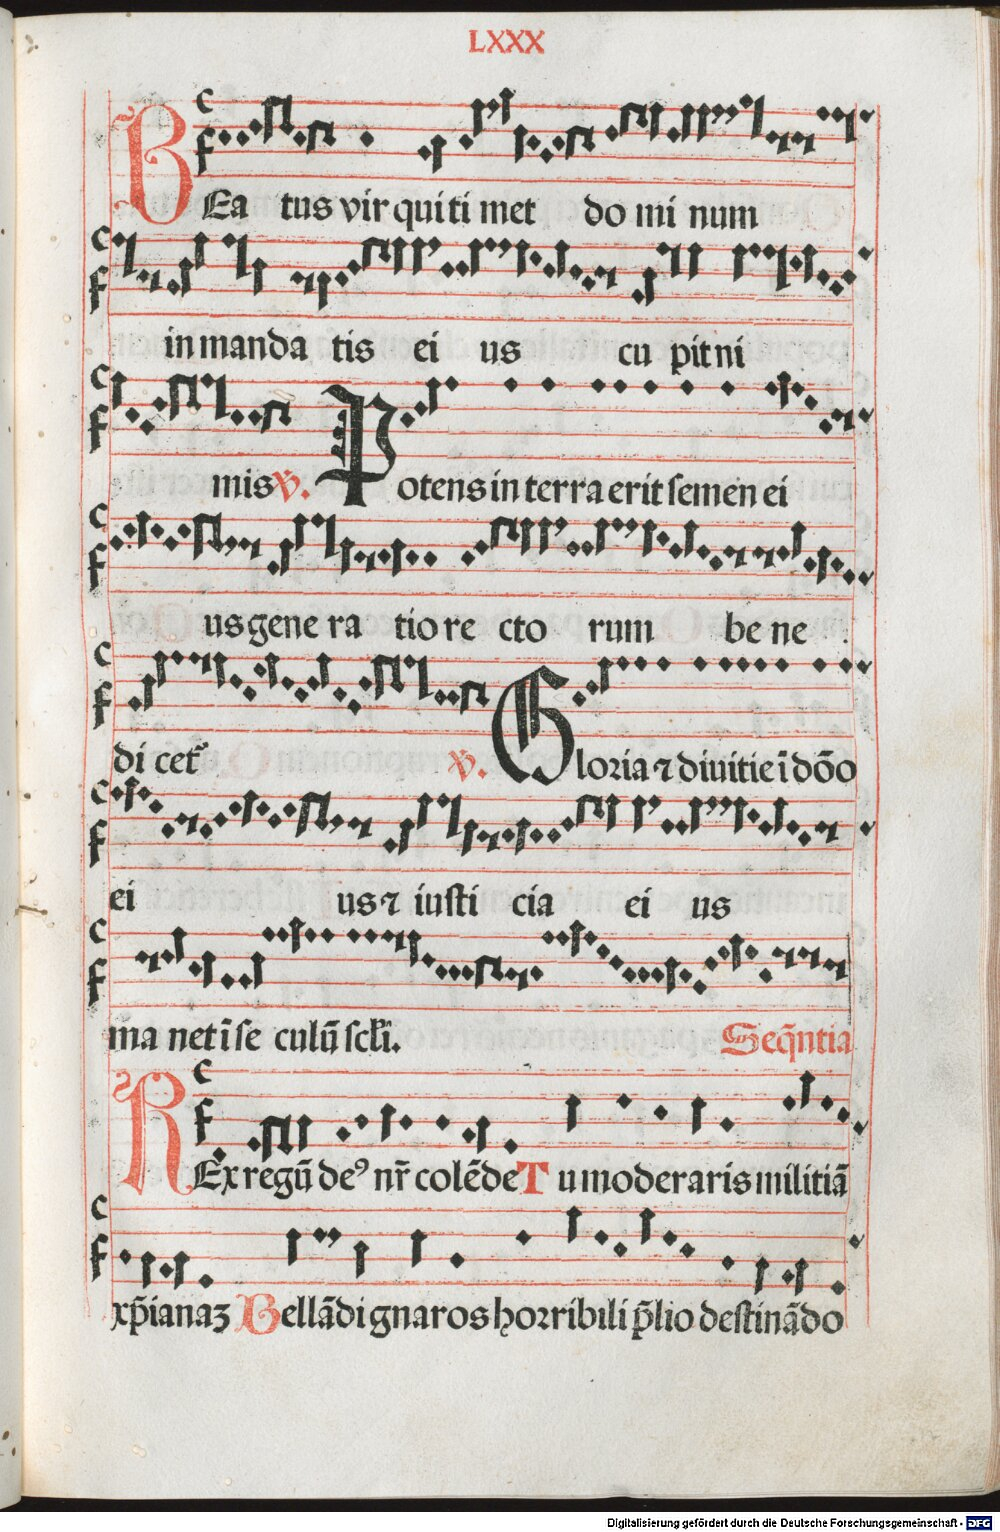 LXXX
BEa tus vir qui ti met do mi num
in manda tis ei us cu pit ni
mis℣. Potens in terra erit semen ei
us gene ra tio re cto rum be ne
di cet᷑ ℣. Gloria ⁊ diuitie ī dōo
ei us ⁊ iusti cia ei us
ma net ī se culū sclī. Seq̄ntia
REx regū deꝰ nr̄ colēde Tu moderaris militiā
xp̄ianaꝫ Bellādi gnaros horribili p̄lio destinādo
Digitalisierung gefördert durch die Deutsche Forschungsgemeinschaft - DFG